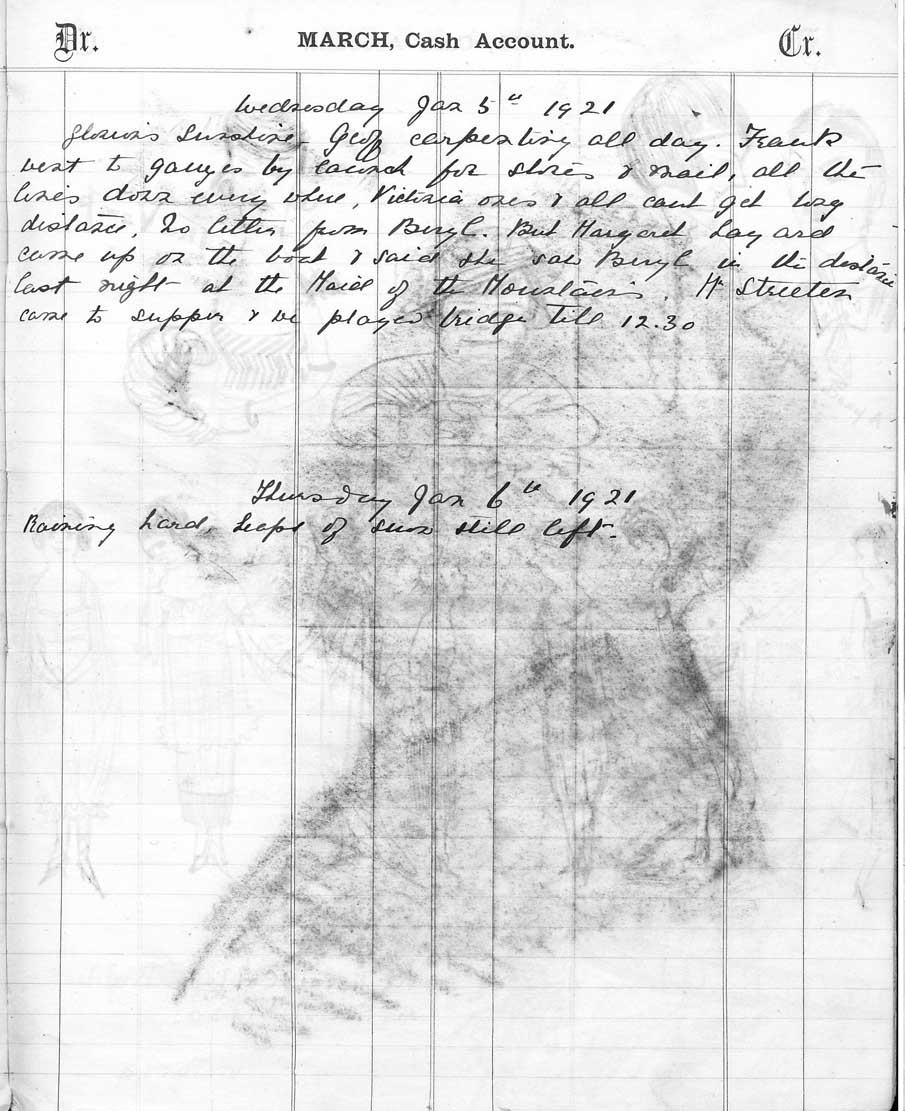 Dr. MARCH, Cash Account. Cr.
Wednesday Jan 5th 1921
Glorious Sunshine, Geoff carpenting all day. Frank
went to ganges by launch for stores & mail, all the
lines down every where, Victoria ones & all cant get long
distance, No letter from Beryl. But Margaret Layard
came up on the boat & said she saw Beryl in the distance
last night at the Maid of the Mountains. Mr Streeten
came to supper & we played bridge till 12.30
Thursday Jan 6th 1921
Raining hard, heaps of snow still left.